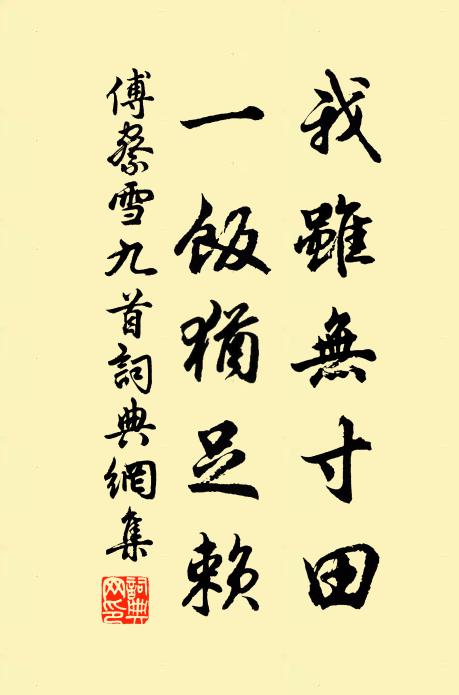 我雖無寸田
一飯猶足賴
傅察雪九首詞典網集
詞典網印